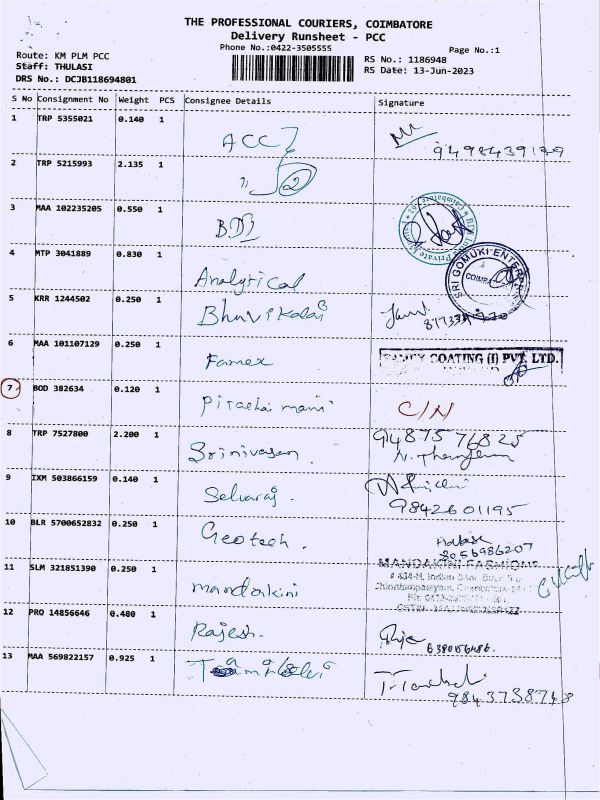 THE PROFESSIONAL COURIERS, COIMBATORE
Delivery Runsheet - PCC
Phone No.:0422-3505555
Page No.:1
Route: KM PLM PCC
Staff: THULASI
DRS No.: DCJB118694801
RS No.: 1186948
RS Date: 13-Jun-2023
S No Consignment No Weight PCS Consignee Details Signature
1 TRP 5355021 0.140 1 ACC
2 TRP 5215993 2.135 1 " 2
3 MAA 102235205 0.550 1
4 MTP 3041889 0.830 1 Analytical
SRI GOMUKI ENTER
5 KRR 1244502 0.250 1
6 MAA 101107129 0.250 1 Famex
COATING (I) PVT. LTD.
7 BOD 382634 0.120 1 C/N
8 TRP 7527800 2.200 1 Srinivasan. 9487576825
9 IXM 503866159 0.140 1 Selvaraj. 9842601195
10 BLR 5700652832 0.250 1 Geotech. 8056986207
11 SLM 321851390 0.250 1 mandakini MANDAKINI FASHIONS
12 PRO 14856646 0.480 1 Rajesh.
13 MAA 569822157 0.925 1 9843738748